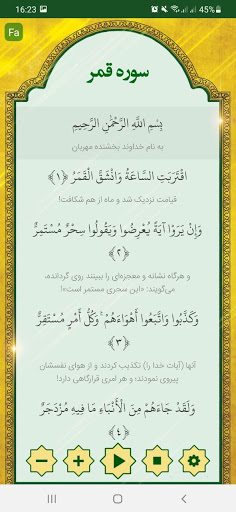 16:23
45%
Fa
سوره قمر
بِسْمِ اللَّهِ الرَّحْمَٰنِ الرَّحِيمِ
به نام خداوند بخشنده مهربان
اقْتَرَبَتِ السَّاعَةُ وَانْشَقَّ الْقَمَرُ ﴿١﴾
قیامت نزدیک شد و ماه از هم شکافت!
وَإِنْ يَرَوْا آيَةً يُعْرِضُوا وَيَقُولُوا سِحْرٌ مُسْتَمِرٌّ
﴿٢﴾
و هرگاه نشانه و معجزه‌ای را ببینند روی گردانده،
می‌گویند: «این سحری مستمر است»!
وَكَذَّبُوا وَاتَّبَعُوا أَهْوَاءَهُمْ ۚ وَكُلُّ أَمْرٍ مُسْتَقِرٌّ
﴿٣﴾
آنها (آیات خدا را) تکذیب کردند و از هوای نفسشان
پیروی نمودند؛ و هر امری قرارگاهی دارد!
وَلَقَدْ جَاءَهُمْ مِنَ الْأَنْبَاءِ مَا فِيهِ مُزْدَجَرٌ
﴿٤﴾